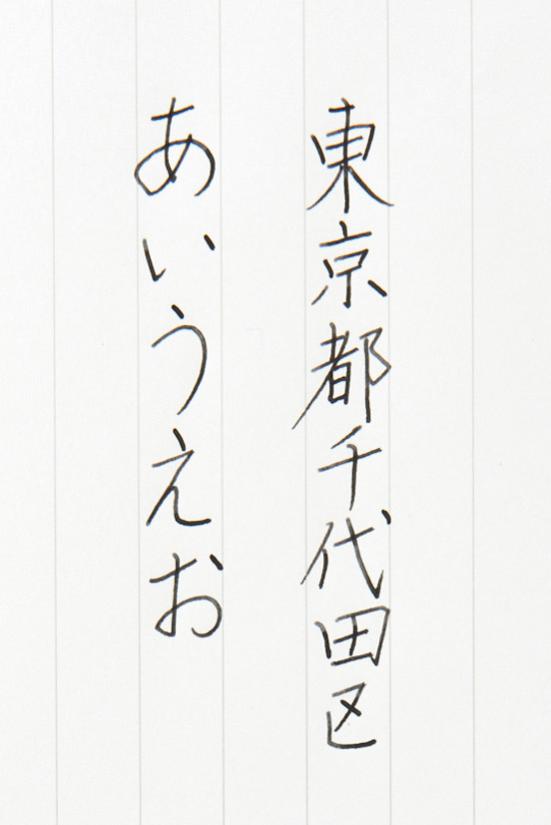 東京都千代田区
あいうえお